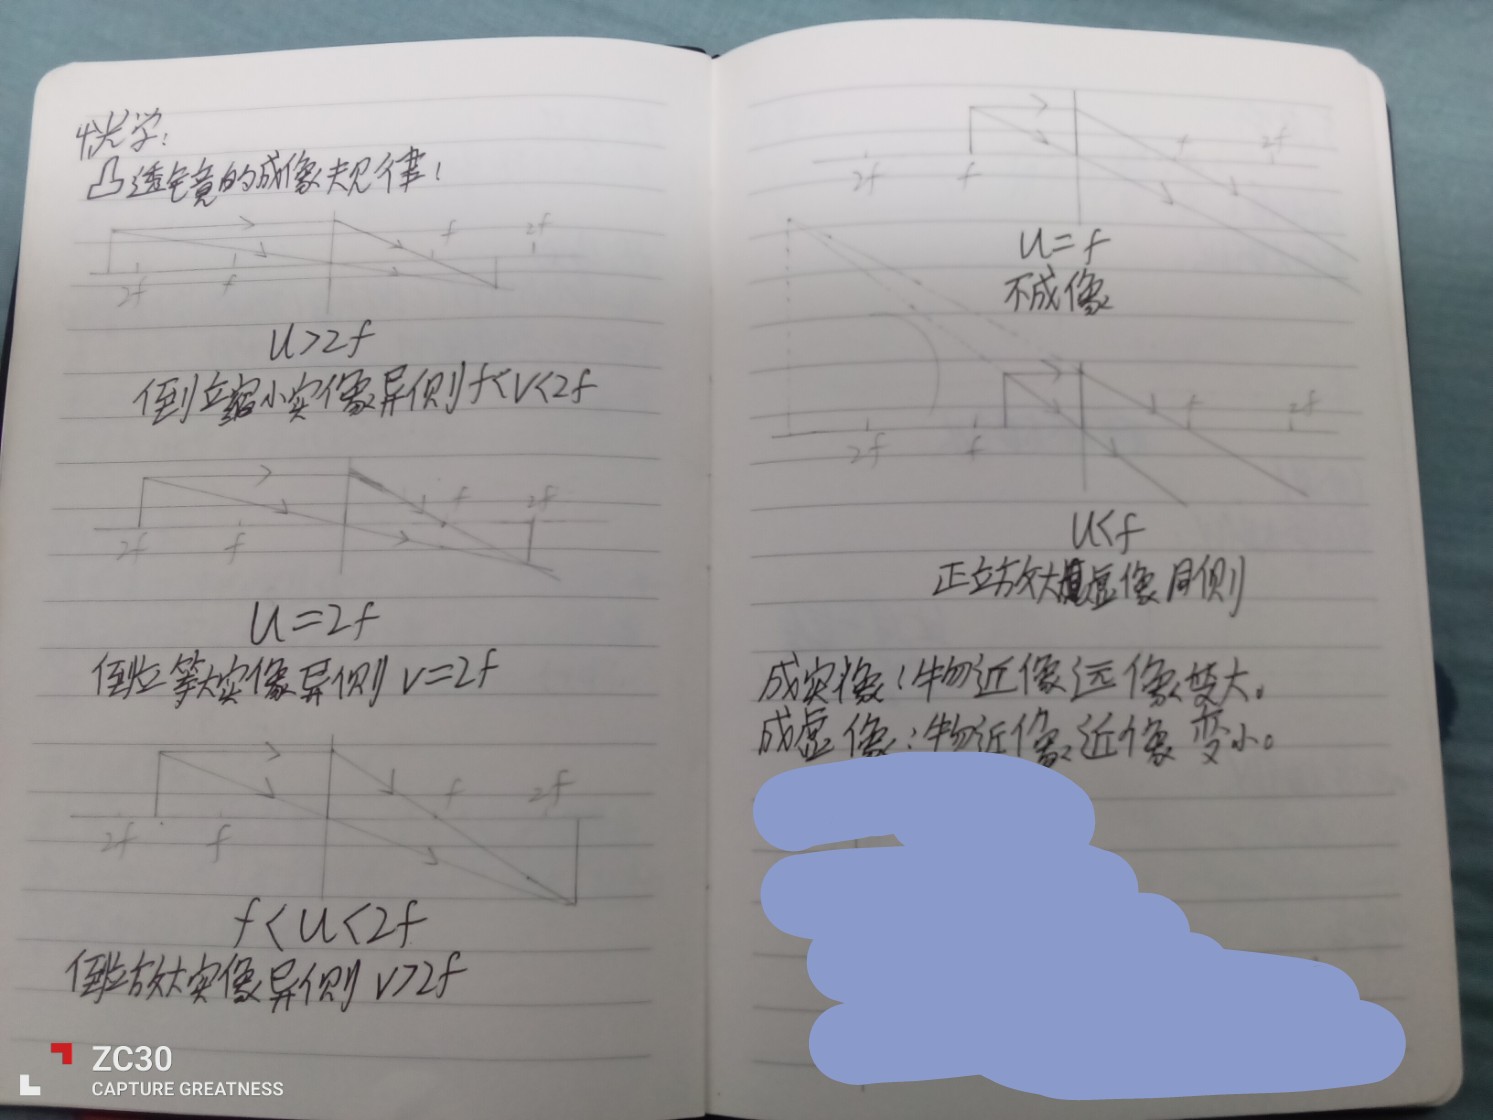 光学:
凸透镜的成像规律:
f 2f
2f f
U>2f
倒立缩小实像异侧 f<v<2f
f 2f
2f f
U=2f
倒立等大实像异侧 v=2f
f 2f
2f f
f<U<2f
倒立放大实像异侧 v>2f
f 2f
2f f
U=f
不成像
f 2f
2f f
U<f
正立放大虚像同侧
成实像:物近像远像变大。
成虚像:物近像近像变小。
ZC30
CAPTURE GREATNESS